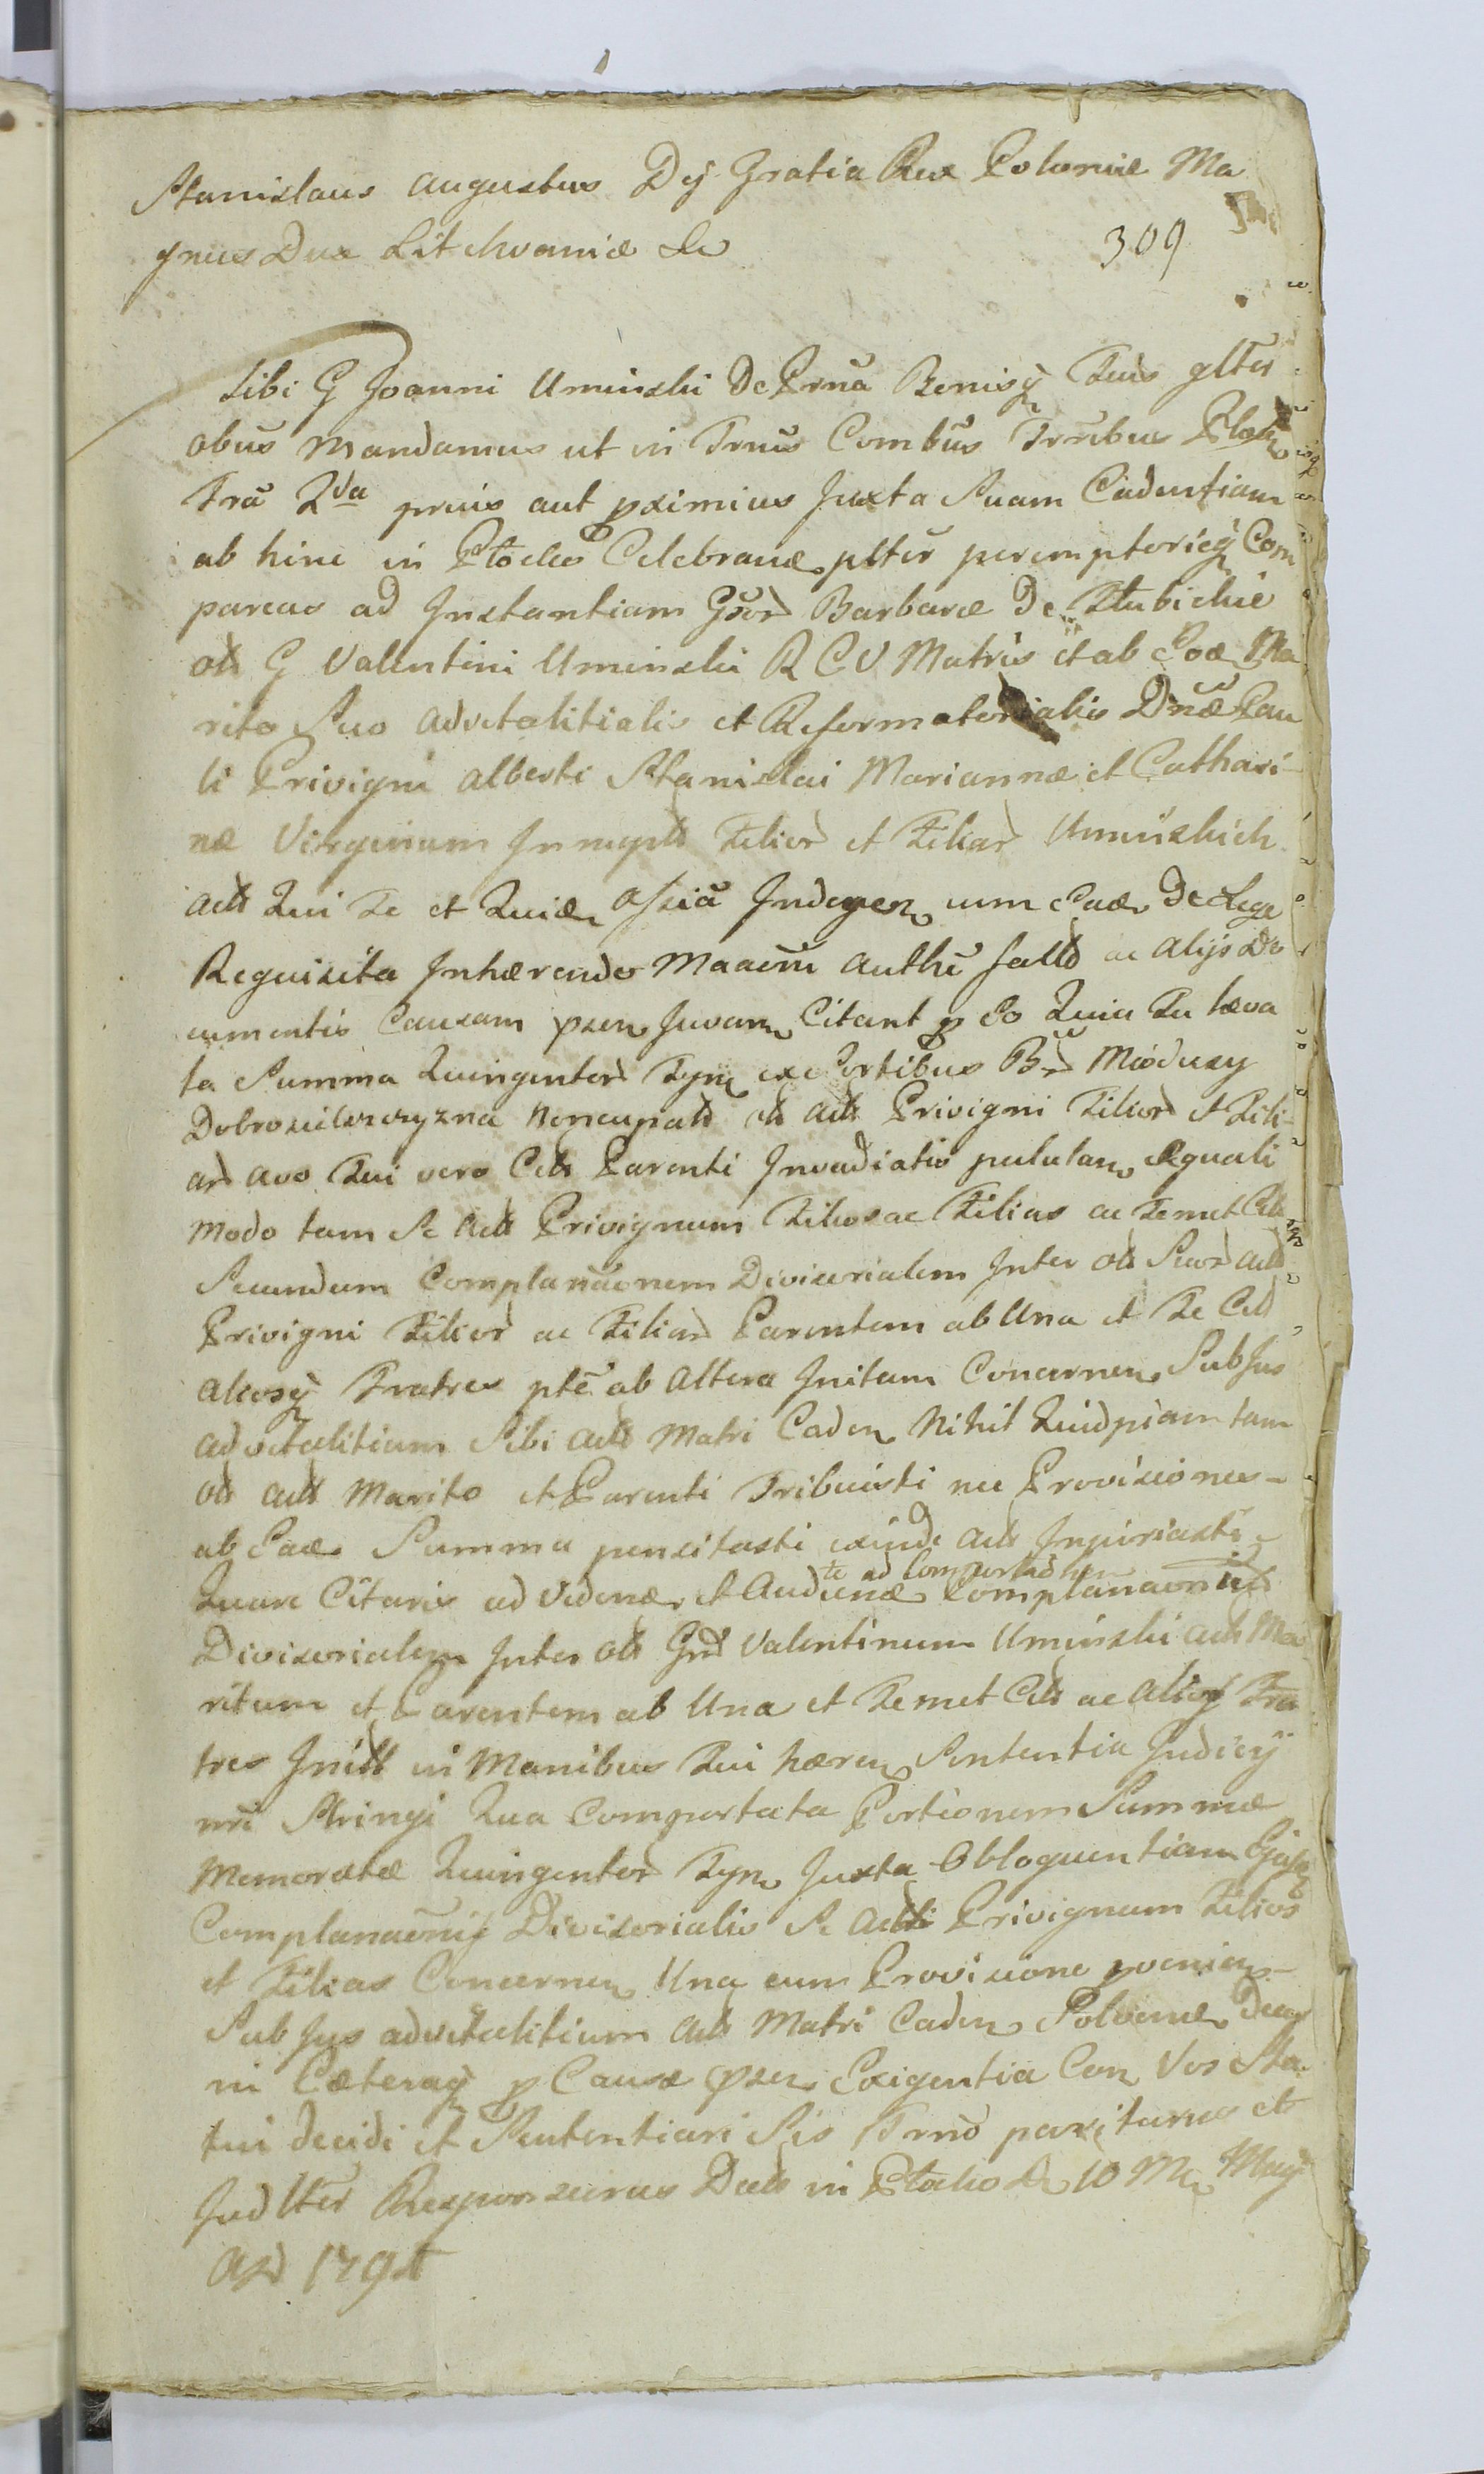 Stanislaus Augustus Dej Gratia Rex Poloniæ Ma
gnus Dux Lithvaniæ &c
309
Tibi G Joanni Uminski De Prna Bonisq Tuis gltir
obus Mandamus ut in Trnis Combus Trribus Plocen
Tra 2da prius aut pximius Juxta Suam Cadentiam
ab hinc in Plocko Celebranæ pltir peremptorieq Com
pareas ad Instantiam Gsor Barbaræ De Słubickie
olt G Valentini Uminski R C V Matris et ab Eoæ Ma
rito Suo advitalitialis et Reformatorialis Dnæ Pau
li Privigni Alberti Stanislai Mariannæ et Cathari-
næ Virginum Innupt Filior et Filiar Uminskich
Act Qui Te et Quiæ Indepen cum Eaæ De Lege
Requisita Inhærendo Maaoni Authi fatt ac Alijs Do
cumentis Causam psen Juvan Citant p Eo Quia Tu læva
ta Summa Quingentor Tyn ex Sortibus Miodusy
Dobrosielszczyzna Noncupatt olt Act Privigni Filior et Fili-
ar Avo Tui vero Citt Parenti Invadiatis pululan Æquali
Modo tam Se Act Privignum Filios ac Filias ac Temet Citt
Secundum Complanaonem Divisorialem Inter olt Suor Act
Privigni Filior ac Filiar Parentem ab Una et Te Citt
aliosq Fratres pte ab Altera Initam Concernen Sub Jus
advitalitium Sibi Act Matri Caden Nihil Quidpiam tam
olt Act Marito et Parenti Tribuisti nec Provisiones-
ab Eaæ Summa pensitasti exinde Act Injuriasti
te ad Comportad
Quare Citaris ad Videnæ et Audienæ Complanaonis
Divisorialem Inter olt Gnd Valentinum Uminski Act Ma
ritum et Parentem ab Una et Temet Citt ac Aliosq Fra
tres Initt in Manibus Tui hæren Sententia Judicij
nri Stringi Qua Comportata Portionem Summæ
Memoratæ Quingentor Tyn Juxta Obloquentiam Ejusq
Complanaonis Divisorialis Se Act Privignum Filios
et Filias Concernen Una cum Provisione pvenien-
Sub Jus advitalitium Act Matri Caden Solvenæ Decer
ni Cæteraq p Causæ psen Exigentia Con Vos Sta
tui decidi et Sententiari Sis Trno pariturus et
Jud lter Responsurus Datt in Płocko D 10 M Maij
AD 1794